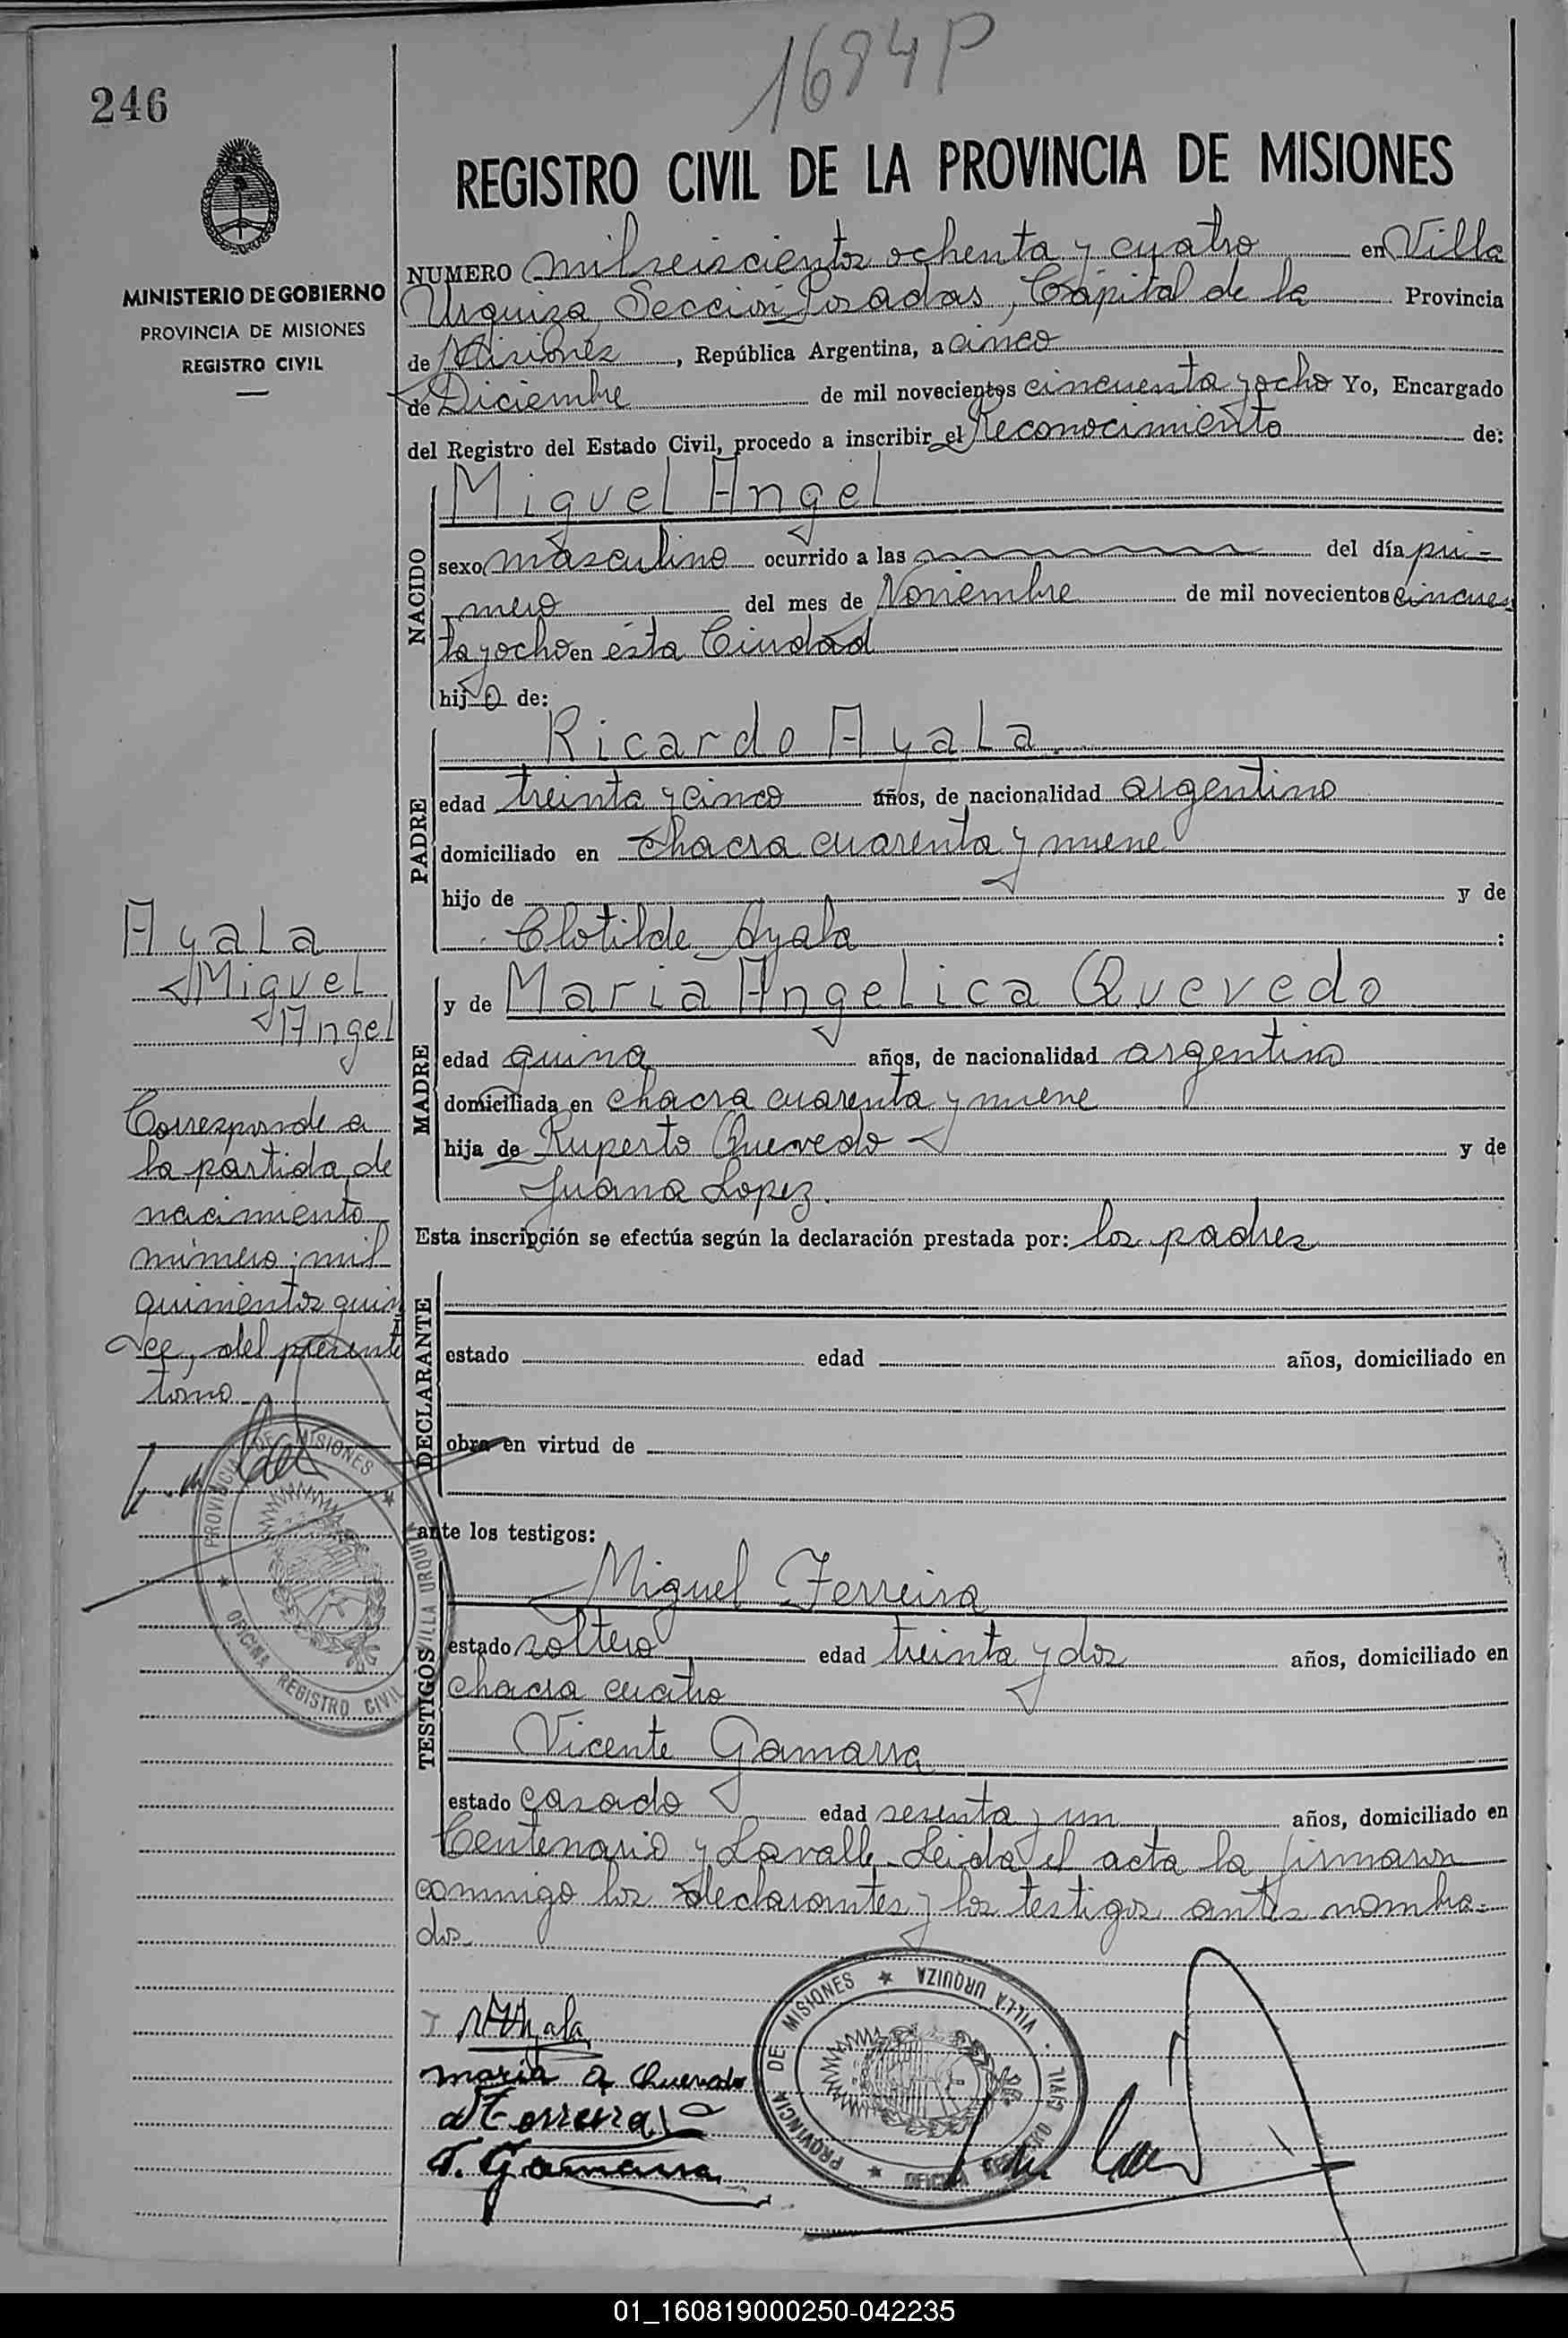 1684P
246
REGISTRO CIVIL DE LA PROVINCIA DE MISIONES
MINISTERIO DE GOBIERNO
PROVINCIA DE MISIONES
REGISTRO CIVIL
NUMERO milseiscientos ochenta y cuatro en Villa
Urquiza, Sección Posadas, Capital de la Provincia
de Misiones, República Argentina, a cinco
de Diciembre de mil novecientos cincuenta y ocho Yo, Encargado
del Registro del Estado Civil, procedo a inscribir el Reconocimiento de:
NACIDO
Miguel Angel
sexo masculino ocurrido a las del día pri-
mero del mes de Noviembre de mil novecientos cincuen
ta y ocho en ésta Ciudad
hijo de:
PADRE
Ricardo Ayala
edad treinta y cinco años, de nacionalidad argentino
domiciliado en chacra cuarenta y nueve
hijo de y de
Clotilde Ayala :
MADRE
y de Maria Angelica Quevedo
edad años, de nacionalidad argentina
domiciliada en chacra cuarenta y nueve
hija de Ruperto Quevedo y de
Juana Lopez.
Esta inscripción se efectúa según la declaración prestada por: los padres
DECLARANTE
estado edad años, domiciliado en
obra en virtud de
ante los testigos:
TESTIGOS
Miguel Ferreira
estado soltero edad treinta y dos años, domiciliado en
chacra cuatro
Vicente Gamarra
estado casado edad sesenta y un años, domiciliado en
Centenario y Lavalle. Leida el acta la firmaron
conmigo los declarantes y los testigos antes nombra-
dos.
Ayala
Miguel
Angel
Corresponde a
la partida de
nacimiento
número: mil
quinientos quin
ce, del presente
tomo.
PROVINCIA DE MISIONES
VILLA URQUIZA
OFICINA REGISTRO CIVIL
R Ayala
maria a Quevedo
Ferreira
Gamarra
PROVINCIA DE MISIONES
VILLA URQUIZA
OFICINA REGISTRO CIVIL
01_160819000250-042235